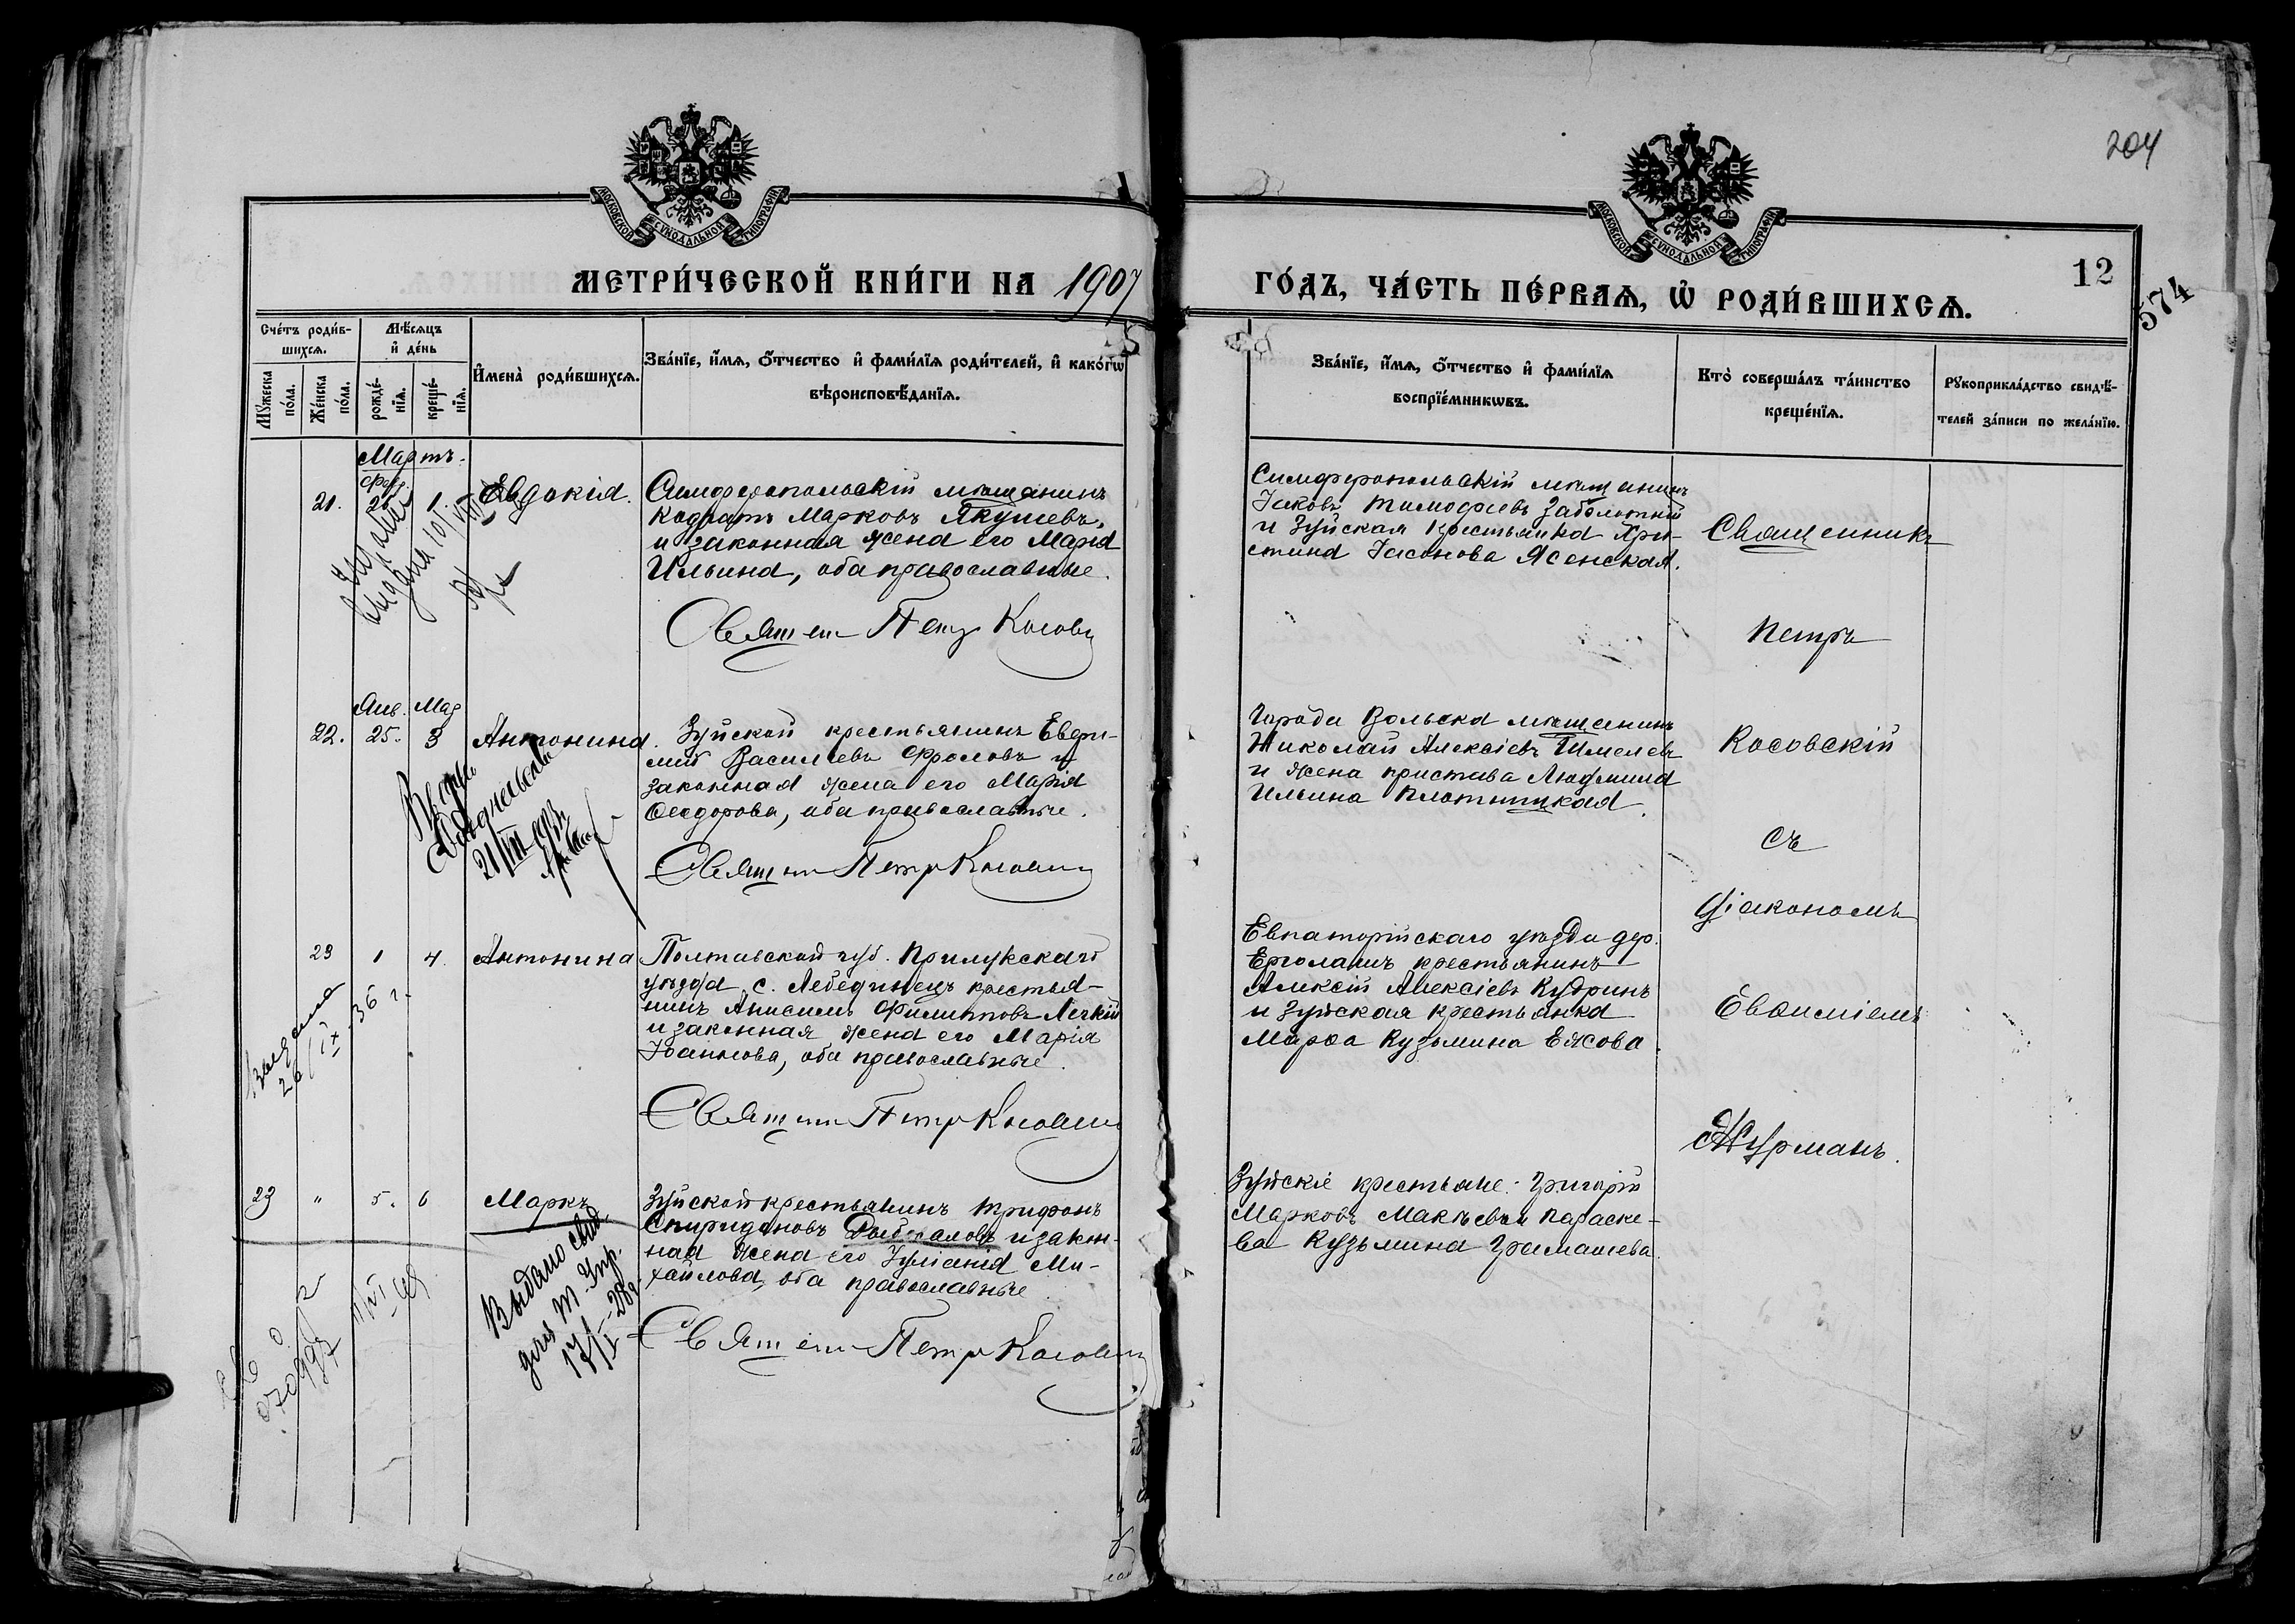 204
МОСКОВСКОЙ СѴНОДАЛЬНОЙ ТИПОГРАФІИ
МОСКОВСКОЙ СѴНОДАЛЬНОЙ ТИПОГРАФІИ
МЕТРИ́ЧЕСКОЙ КНИ́ГИ НА 1907
ГО́ДЪ, ЧА́СТЬ ПЕ́РВАѦ, Ѡ҆ РОДИ́ВШИХСѦ.
12
574
Сче́тъ роди́в-
шихсѧ.
Мѣ́сѧцъ
и҆ де́нь
Мꙋжеска по́ла.
Же́нска по́ла.
рожде́-
нїѧ.
креще́-
нїѧ.
И҆мена̀ роди́вшихсѧ.
Зва́нїе, и҆́мѧ, ѻ҆́тчество и҆ фами́лїѧ роди́телей, и҆ како́гѡ
вѣроисповѣ́данїѧ.
Зва́нїе, и҆́мѧ, ѻ҆́тчество и҆ фами́лїѧ
воспрїе́мникѡвъ.
Кто̀ соверша́лъ та́инство
креще́нїѧ.
Рꙋкоприкла́дство свидѣ́-
телей за́писи по жела́нїю.
Мартъ.
Февр.
21. 25 1 Евдокія.
Симферопольскій мѣщанинъ
Кодратъ Марковъ Якушевъ,
и законная жена его Марія
Ильина, оба православные.
Священ Петръ Косовск
Симферопольскій мѣщанинъ
Іаковъ Тимофеевъ Заболотній
и Зуйская крестьянка Хри-
стина Іасонова Ясенская.
Священникъ
Петръ
Косовскій
съ
діакономъ
Евѳиміемъ
Журманъ.
Янв. Мар
22. 25. 3 Антонина.
Зуйской крестьянинъ Евфи-
мій Васильевъ Фроловъ и
законная жена его Марія
Ѳеодорова, оба православные.
Священ Петръ Косовск
Города Вольска мѣщанинъ
Николай Алексіевъ Шмелевъ
и жена пристава Людмила
Ильина Плотницкая.
21/VIII
23 1 4. Антонина
Полтавской губ. Прилукскаго
уѣзда с. Лебединецъ крестья-
нинъ Анисимъ Филипповъ Легкій
и законная жена его Марія
Іоаннова, оба православные.
Священ Петръ Косовск
Евпаторійскаго уѣзда дер.
Ерголашъ крестьянинъ
Алексій Алексіевъ Кудринъ
и Зуйская крестьянка
Марѳа Кузьмина Ежова.
Выдана
26/IX 36 г.
23 " 5. 6 Маркъ
Зуйской крестьянинъ Трифонъ
Спиридоновъ и закон-
ная жена его Іуліанія Ми-
хайлова, оба православные.
Священ Петръ Косовск
Зуйскіе крестьяне: Григорій
Марковъ Макѣевъ и Параске-
ва Кузьмина Грамашева.
Выдано свид.
для М. Упр.
17/I-28 г.